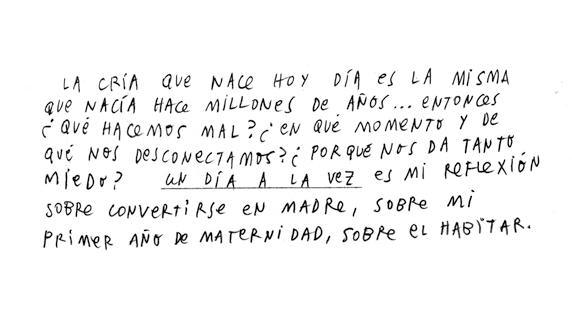 LA CRÍA QUE NACE HOY DÍA ES LA MISMA
QUE NACÍA HACE MILLONES DE AÑOS... ENTONCES
¿QUÉ HACEMOS MAL? ¿EN QUÉ MOMENTO Y DE
QUÉ NOS DESCONECTAMOS? ¿PORQUÉ NOS DA TANTO
MIEDO? UN DÍA A LA VEZ ES MI REFLEXIÓN
SOBRE CONVERTIRSE EN MADRE, SOBRE MI
PRIMER AÑO DE MATERNIDAD, SOBRE EL HABITAR.